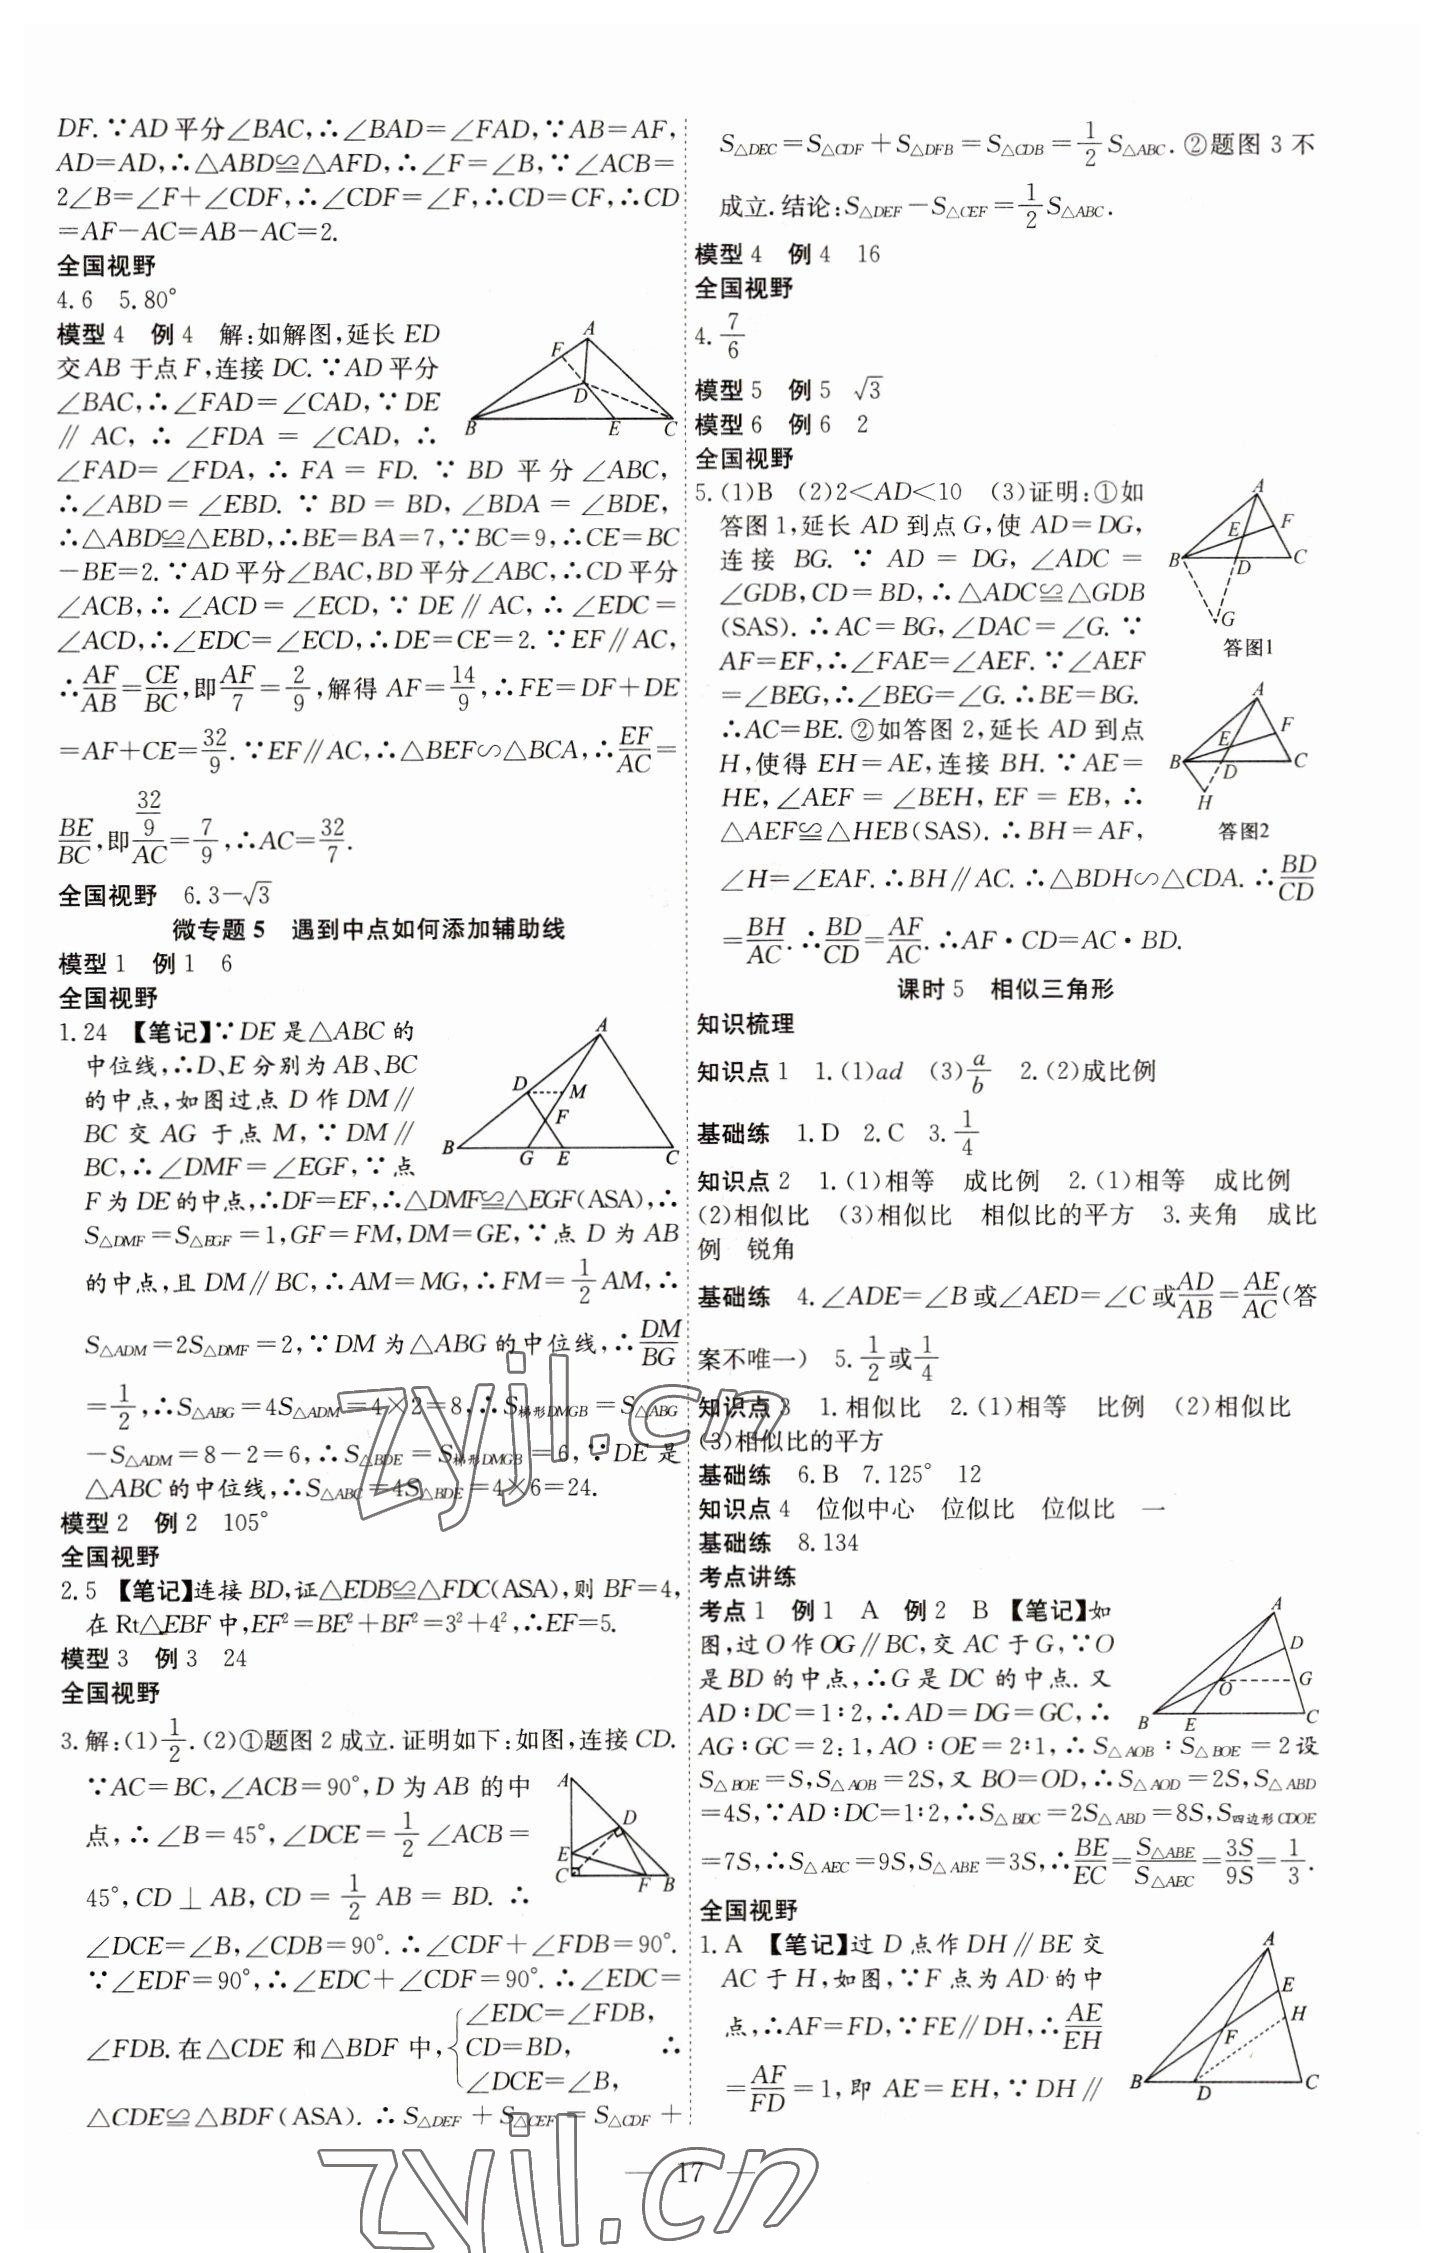 DF.∵AD平分∠BAC,∴∠BAD=∠FAD,∵AB=AF,
AD=AD,∴△ABD≌△AFD,∴∠F=∠B,∵∠ACB=
2∠B=∠F+∠CDF,∴∠CDF=∠F,∴CD=CF,∴CD
=AF-AC=AB-AC=2.
全国视野
4.6　5.80°
模型4　例4　解:如解图,延长ED
交AB于点F,连接DC.∵AD平分
∠BAC,∴∠FAD=∠CAD,∵DE
∥AC,∴∠FDA=∠CAD,∴
∠FAD=∠FDA,∴FA=FD.∵BD平分∠ABC,
∴∠ABD=∠EBD.∵BD=BD,∠BDA=∠BDE,
∴△ABD≌△EBD,∴BE=BA=7,∵BC=9,∴CE=BC
-BE=2.∵AD平分∠BAC,BD平分∠ABC,∴CD平分
∠ACB,∴∠ACD=∠ECD,∵DE∥AC,∴∠EDC=
∠ACD,∴∠EDC=∠ECD,∴DE=CE=2.∵EF∥AC,
∴AF/AB=CE/BC,即AF/7=2/9,解得AF=14/9,∴FE=DF+DE
=AF+CE=32/9.∵EF∥AC,∴△BEF∽△BCA,∴EF/AC=
BE/BC,即(32/9)/AC=7/9,∴AC=32/7.
全国视野　6.3-√3
微专题5　遇到中点如何添加辅助线
模型1　例1　6
全国视野
1.24　【笔记】∵DE是△ABC的
中位线,∴D、E分别为AB、BC
的中点,如图过点D作DM∥
BC交AG于点M,∵DM∥
BC,∴∠DMF=∠EGF,∵点
F为DE的中点,∴DF=EF,∴△DMF≌△EGF(ASA),∴
S△DMF=S△EGF=1,GF=FM,DM=GE,∵点D为AB
的中点,且DM∥BC,∴AM=MG,∴FM=1/2AM,∴
S△ADM=2S△DMF=2,∵DM为△ABG的中位线,∴DM/BG
=1/2,∴S△ABG=4S△ADM=4×2=8,∴S梯形DMGB=S△ABG
-S△ADM=8-2=6,∴S△BDE=S梯形DMGB=6,∵DE是
△ABC的中位线,∴S△ABC=4S△BDE=4×6=24.
模型2　例2　105°
全国视野
2.5　【笔记】连接BD,证△EDB≌△FDC(ASA),则BF=4,
在Rt△EBF中,EF²=BE²+BF²=3²+4²,∴EF=5.
模型3　例3　24
全国视野
3.解:(1)1/2.(2)①题图2成立.证明如下:如图,连接CD.
∵AC=BC,∠ACB=90°,D为AB的中
点,∴∠B=45°,∠DCE=1/2∠ACB=
45°,CD⊥AB,CD=1/2AB=BD.∴
∠DCE=∠B,∠CDB=90°.∴∠CDF+∠FDB=90°.
∵∠EDF=90°,∴∠EDC+∠CDF=90°.∴∠EDC=
∠FDB.在△CDE和△BDF中,{∠EDC=∠FDB,
CD=BD,　∴
∠DCE=∠B,
△CDE≌△BDF(ASA).∴S△DEF+S△CEF=S△CDF+
A
F
D
B E C
A
D M
F
B G E C
A
D
E
C F B
S△DEC=S△CDF+S△DFB=S△CDB=1/2S△ABC.②题图3不
成立.结论:S△DEF-S△CEF=1/2S△ABC.
模型4　例4　16
全国视野
4.7/6
模型5　例5　√3
模型6　例6　2
全国视野
5.(1)B　(2)2<AD<10　(3)证明:①如
答图1,延长AD到点G,使AD=DG,
连接BG.∵AD=DG,∠ADC=
∠GDB,CD=BD,∴△ADC≌△GDB
(SAS).∴AC=BG,∠DAC=∠G.∵
AF=EF,∴∠FAE=∠AEF.∵∠AEF
=∠BEG,∴∠BEG=∠G.∴BE=BG.
∴AC=BE.②如答图2,延长AD到点
H,使得EH=AE,连接BH.∵AE=
HE,∠AEF=∠BEH,EF=EB,∴
△AEF≌△HEB(SAS).∴BH=AF,
∠H=∠EAF.∴BH∥AC.∴△BDH∽△CDA.∴BD/CD
=BH/AC.∴BD/CD=AF/AC.∴AF·CD=AC·BD.
A
E F
B D C
G
答图1
A
E F
B D C
H
答图2
课时5　相似三角形
知识梳理
知识点1　1.(1)ad　(3)a/b　2.(2)成比例
基础练　1.D　2.C　3.1/4
知识点2　1.(1)相等　成比例　2.(1)相等　成比例
(2)相似比　(3)相似比　相似比的平方　3.夹角　成比
例　锐角
基础练　4.∠ADE=∠B或∠AED=∠C或AD/AB=AE/AC(答
案不唯一)　5.1/2或1/4
知识点3　1.相似比　2.(1)相等　比例　(2)相似比
(3)相似比的平方
基础练　6.B　7.125°　12
知识点4　位似中心　位似比　位似比　一
基础练　8.134
考点讲练
考点1　例1　A　例2　B　【笔记】如
图,过O作OG∥BC,交AC于G,∵O
是BD的中点,∴G是DC的中点.又
AD∶DC=1∶2,∴AD=DG=GC,∴
AG∶GC=2∶1,AO∶OE=2∶1,∴S△AOB∶S△BOE=2设
S△BOE=S,S△AOB=2S,又BO=OD,∴S△AOD=2S,S△ABD
=4S,∵AD∶DC=1∶2,∴S△BDC=2S△ABD=8S,S四边形CDOE
=7S,∴S△AEC=9S,S△ABE=3S,∴BE/EC=S△ABE/S△AEC=3S/9S=1/3.
全国视野
1.A　【笔记】过D点作DH∥BE交
AC于H,如图,∵F点为AD的中
点,∴AF=FD,∵FE∥DH,∴AE/EH
=AF/FD=1,即AE=EH,∵DH∥
A
D
O G
B E C
A
E
H
F
B D C
— 17 —
zyjl.cn
zyjl.cn